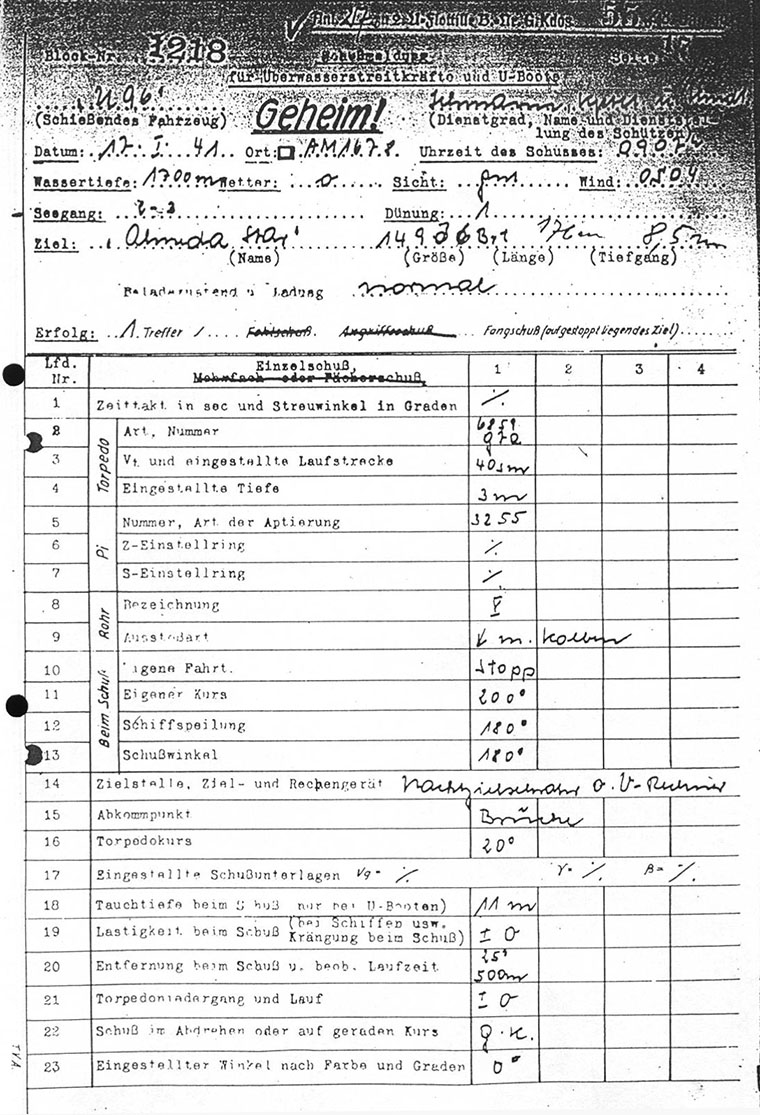 Block-Nr. 1218
Schußmeldung
Seite
für Überwasserstreitkräfte und U-Boote
"U 96"
Geheim!
(Schießendes Fahrzeug)
(Dienstgrad, Name und Dienststellung des Schützen)
Datum: 17. I. 41 Ort: AM 1678 Uhrzeit des Schusses: 0907
Wassertiefe: 1700m Wetter: o Sicht: gut Wind: OSO 4
Seegang: 2-3 Dünung: 1
Ziel: "Almeda Star" 14936 Brt 176m 8,5m
(Name) (Größe) (Länge) (Tiefgang)
Beladezustand u. Ladung normal
Erfolg: 1. Treffer / Fehlschuß. Angriffsschuß Fangschuß (aufgestoppt liegendes Ziel)
Lfd. Nr. Einzelschuß, Mehrfach oder Fächerschuß, 1 2 3 4
1 Zeittakt in sec und Streuwinkel in Graden ·/.
Torpedo
2 Art, Nummer 6851 g7a
3 Vt und eingestellte Laufstrecke 40sm
4 Eingestellte Tiefe 3m
Pi
5 Nummer, Art der Aptierung 3255
6 Z-Einstellring ·/.
7 S-Einstellring ·/.
Rohr
8 Bezeichnung V
9 Ausstoßart m. Kolben
Beim Schuß
10 Eigene Fahrt. Stopp
11 Eigener Kurs 200°
12 Schiffspeilung 180°
13 Schußwinkel 180°
14 Zielstelle, Ziel- und Rechengerät Nachtzielsehrohr o. V-Rechner
15 Abkommpunkt Brücke
16 Torpedokurs 20°
17 Eingestellte Schußunterlagen Vg= ·/. γ= ·/. β= ·/.
18 Tauchtiefe beim Schuß nur bei U-Booten) 11 m
19 Lastigkeit beim Schuß (bei Schiffen usw. Krängung beim Schuß) ± 0
20 Entfernung beim Schuß u. beob. Laufzeit 25s 500m
21 Torpedoniedergang und Lauf ± 0
22 Schuß im Abdrehen oder auf geraden Kurs g. K.
23 Eingestellter Winkel nach Farbe und Graden 0°